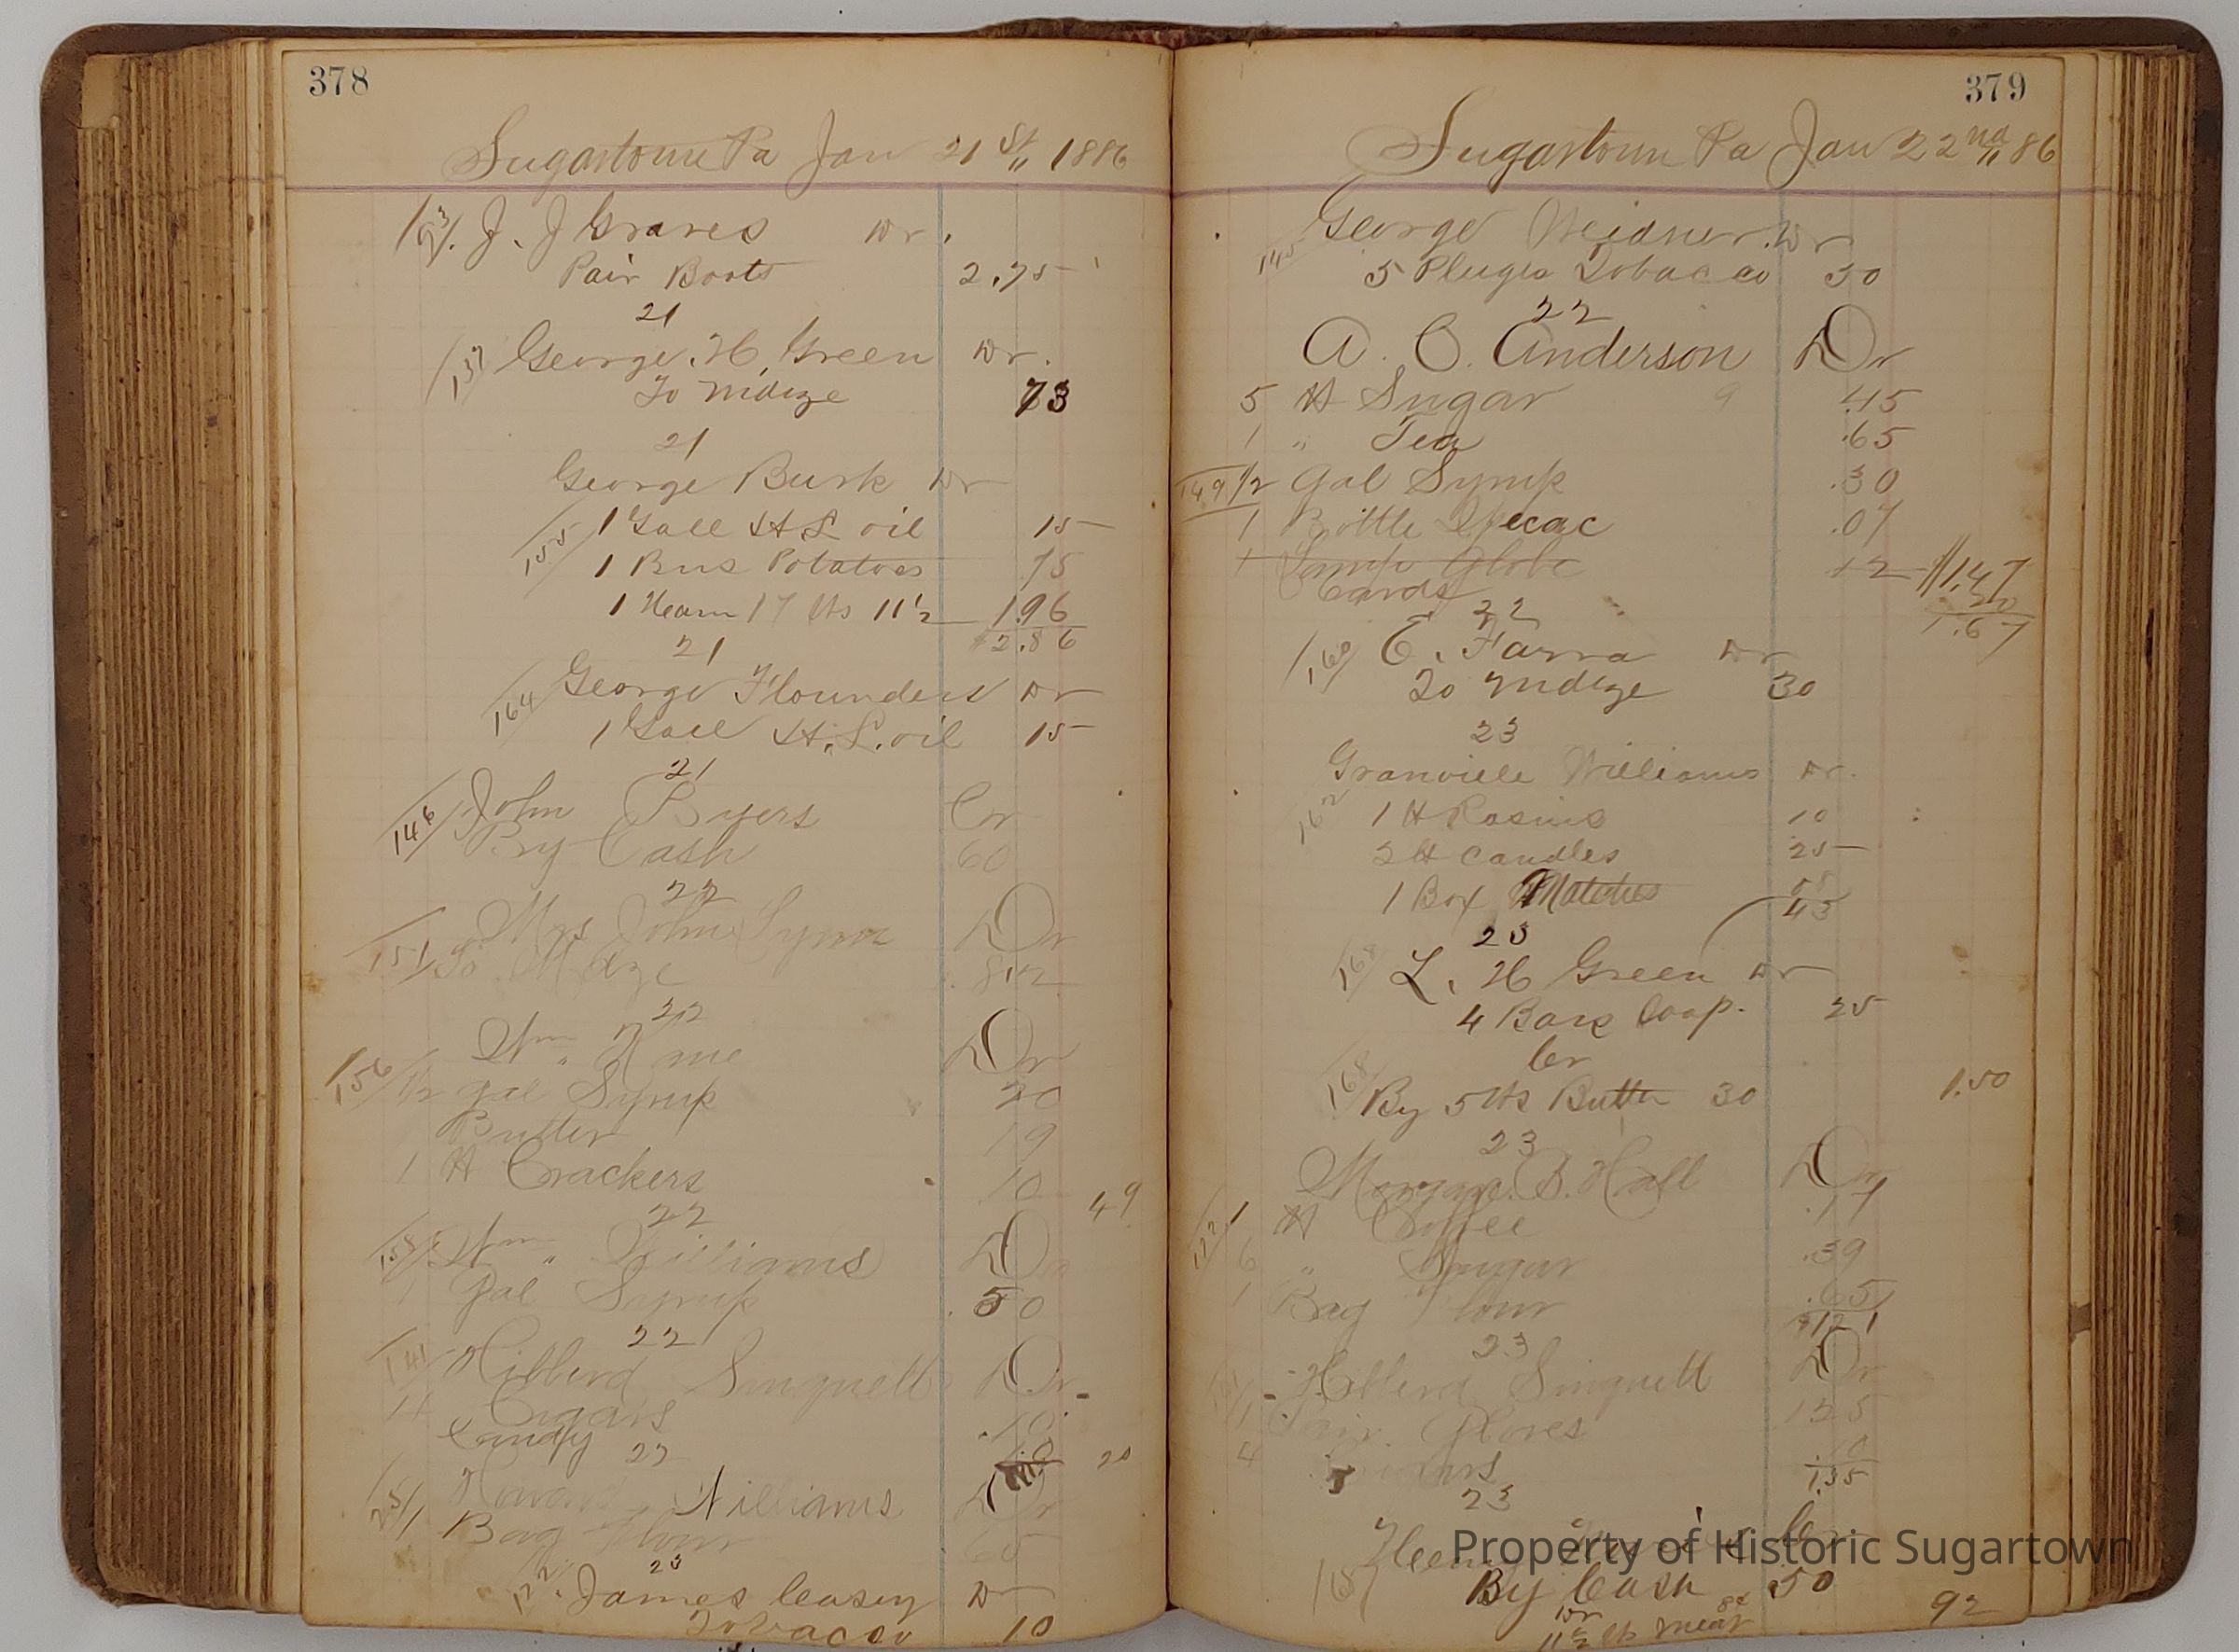 378
Sugartown Pa Jan 21st 1886
153/. J. J Graves Dr.
Pair Boots 2.75
21
137 George. H. Green Dr.
To Mdize 73
21
George Burk Dr
155 1 Gall H L oil 15
1 Bus Potatoes 75
1 Heam 17 lbs 11½ 1.96
2.86
21
164 George Flounders Dr
1 Gall H. L. oil 15
21
146 John Byers Cr
By Cash 60
22
151 Mrs John Lynn Dr
To Mdze
22
Wm Dr
156 1/2 gal Syrup 20
Butter 19
1 # Crackers 10
49
22
158 Wm Williams Dr
1 Gal Syrup .50
22
141 Hibberd Smquell Dr.
Cigars .10
Candy 10 20
22
Howard Williams Dr
1 Bag Flour 65
23
James Ceasey Dr
Tobacco 10
379
Sugartown Pa Jan 22nd 86
145 George Weidner. Dr
5 Pluges Tobacco 50
22
A. O. Anderson Dr
5 # Sugar 9 .45
1 " Tea .65
149 1/2 Gal Syrup .30
1 Bottle Ipecac .07
1 Lamp Globe 12 $1.47
Cards 20
1.67
22
160 E. Farra Dr
To Mdize 30
23
Granville Williams Dr.
162 1 # Rasins 10
2 # Candles 25
1 Box Matches 08
43
23
168 L. H Green Dr
4 Bars Soap. 25
Cr
168 By 5 lbs Butter 30 1.50
23
Morgan. B. Hall Dr
122 1 # Coffee .17
6 " Sugar .39
1 Bag Flour .65
$1.21
23
Hibberd Smquell Dr
1 Pair Gloves 1.25
4 Cigars .10
1.35
23
Henry Cr
Property of Historic Sugartown
By Cash .50
Dr
11½ lb meat 8c 92